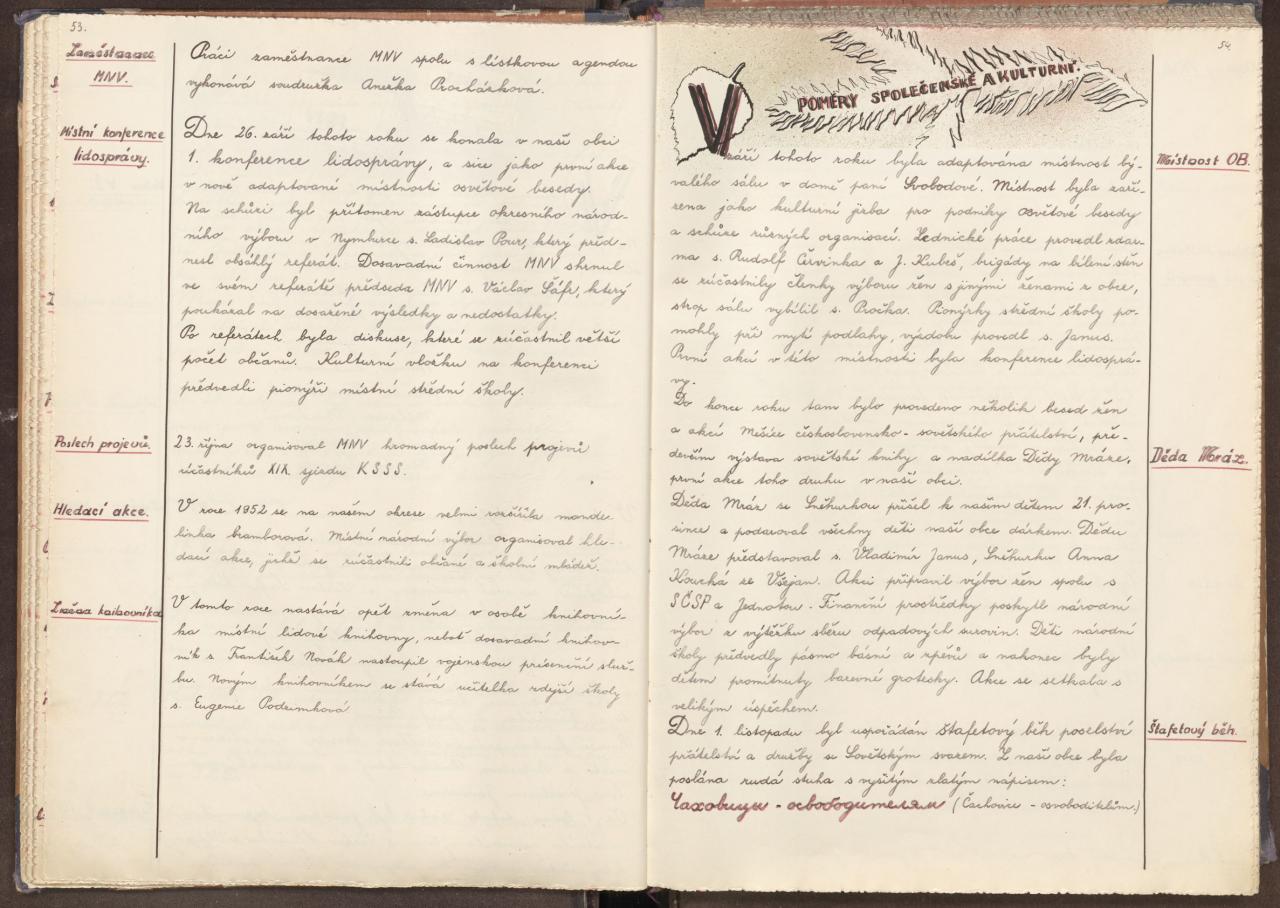 53.
Zaměstnanec
MNV.
Práci zaměstnance MNV spolu s lístkovou agendou
vykonává soudružka Anežka Procházková.
Místní konference
lidosprávy.
Dne 26. září tohoto roku se konala v naší obci
1. konference lidosprávy, a sice jako první akce
v nově adaptované místnosti osvětové besedy.
Na schůzi byl přítomen zástupce okresního národ-
ního výboru v Nymburce s. Ladislav Pour, který před-
nesl obsáhlý referát. Dosavadní činnost MNV shrnul
ve svém referátě předseda MNV s. Václav Šáfr, který
poukázal na dosažené výsledky a nedostatky.
Po referátech byla diskuse, které se zúčastnil větší
počet občanů. Kulturní vložku na konferenci
předvedli pionýři místní střední školy.
Poslech projevů.
23. října organisoval MNV hromadný poslech projevů
účastníků XIX. sjezdu KSSS.
Hledací akce.
V roce 1952 se na našem okrese velmi rozšířila mande-
linka bramborová. Místní národní výbor organisoval hle-
dací akce, jichž se zúčastnili občané a školní mládež.
Změna knihovníka
V tomto roce nastává opět změna v osobě knihovní-
ka místní lidové knihovny, neboť dosavadní knihov-
ník s. František Novák nastoupil vojenskou presenční služ-
bu. Novým knihovníkem se stává učitelka zdejší školy
s. Eugenie Podzimková
54.
POMĚRY SPOLEČENSKÉ A KULTURNÍ.
V září tohoto roku byla adaptována místnost bý-
valého sálu v domě paní Svobodové. Místnost byla zaří-
zena jako kulturní jizba pro podniky osvětové besedy
a schůze různých organisací. Zednické práce provedl zdar-
ma s. Rudolf Červinka a J. Kubeš, brigády na bílení stěn
se zúčastnily členky výboru žen s jinými ženami z obce,
strop sálu vybílil s. Procka. Pionýrky střední školy po-
mohly při mytí podlahy, výzdobu provedl s. Janus.
První akcí v této místnosti byla konference lidosprá-
vy.
Místnost OB.
Do konce roku tam bylo provedeno několik besed žen
a akcí Měsíce československo-sovětského přátelství, pře-
devším výstava sovětské knihy a nadílka Dědy Mráze,
první akce toho druhu v naší obci.
Děda Mráz.
Děda Mráz se Sněhurkou přišel k našim dětem 21. pro-
since a podaroval všechny děti naší obce dárkem. Dědu
Mráze představoval s. Vladimír Janus, Sněhurku Anna
Koucká ze Všejan. Akci připravil výbor žen spolu s
SČSP a Jednotou. Finanční prostředky poskytl národní
výbor z výtěžku sběru odpadových surovin. Děti národní
školy předvedly pásmo básní a zpěvů a nakonec byly
dětem promítnuty barevné grotesky. Akce se setkala s
velikým úspěchem.
Štafetový běh.
Dne 1. listopadu byl uspořádán štafetový běh poselství
přátelství a družby se Sovětským svazem. Z naší obce byla
poslána rudá stuha s vyšitým zlatým nápisem:
Чаховицы - освободителям (Čachovice - osvoboditelům.)